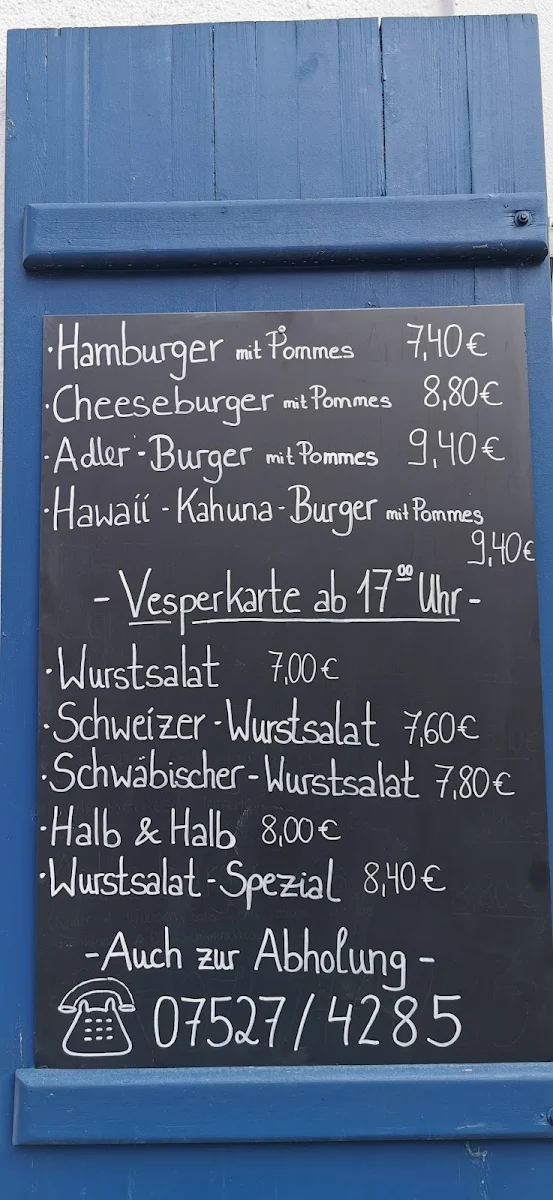 ·Hamburger mit Pommes 7,40€
·Cheeseburger mit Pommes 8,80€
·Adler-Burger mit Pommes 9,40€
·Hawaii-Kahuna-Burger mit Pommes
9,40€
- Vesperkarte ab 17⁰⁰ Uhr -
·Wurstsalat 7,00€
·Schweizer-Wurstsalat 7,60€
·Schwäbischer-Wurstsalat 7,80€
·Halb & Halb 8,00€
·Wurstsalat-Spezial 8,40€
-Auch zur Abholung-
07527/4285